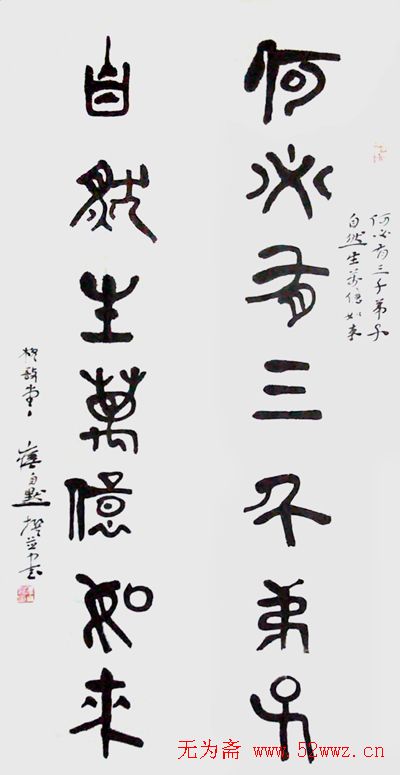 何必有三千弟子
自然生萬億如來
何必有三千弟子
自然生萬億如來
崔自默撰並书
无为斋 www.52wwz.cn